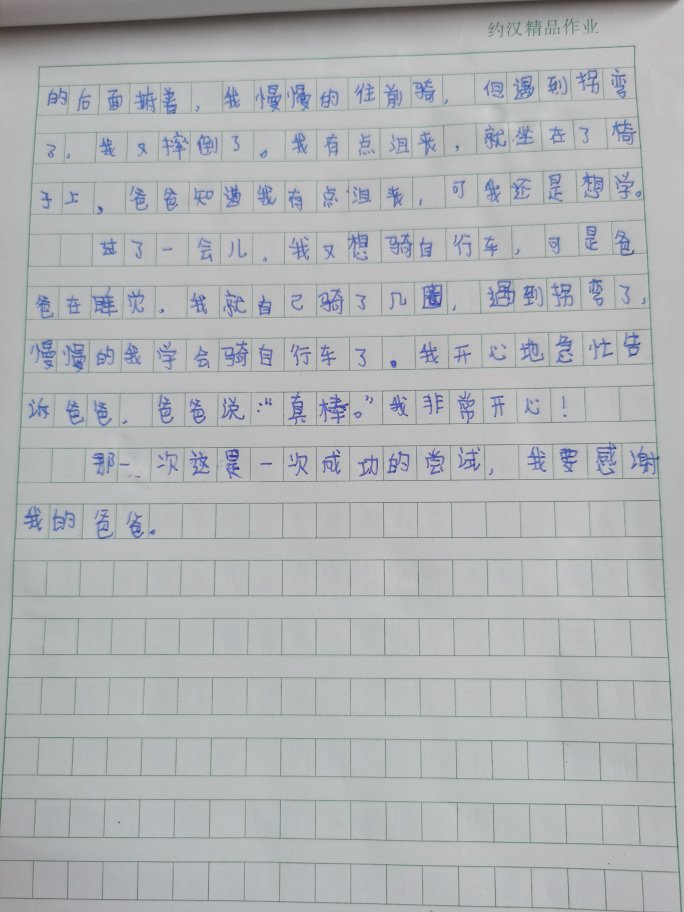 约汉精品作业
的后面掅着，我慢慢的往前骑，但遇到拐弯
了，我又摔倒了。我有点沮丧，就坐在了椅
子上。爸爸知道我有点沮丧，可我还是想学。
过了一会儿，我又想骑自行车，可是爸
爸在睡觉，我就自己骑了几圈，遇到拐弯了，
慢慢的我学会骑自行车了。我开心地急忙告
诉爸爸，爸爸说：“真棒。”我非常开心！
那一次这是一次成功的尝试，我要感谢
我的爸爸。